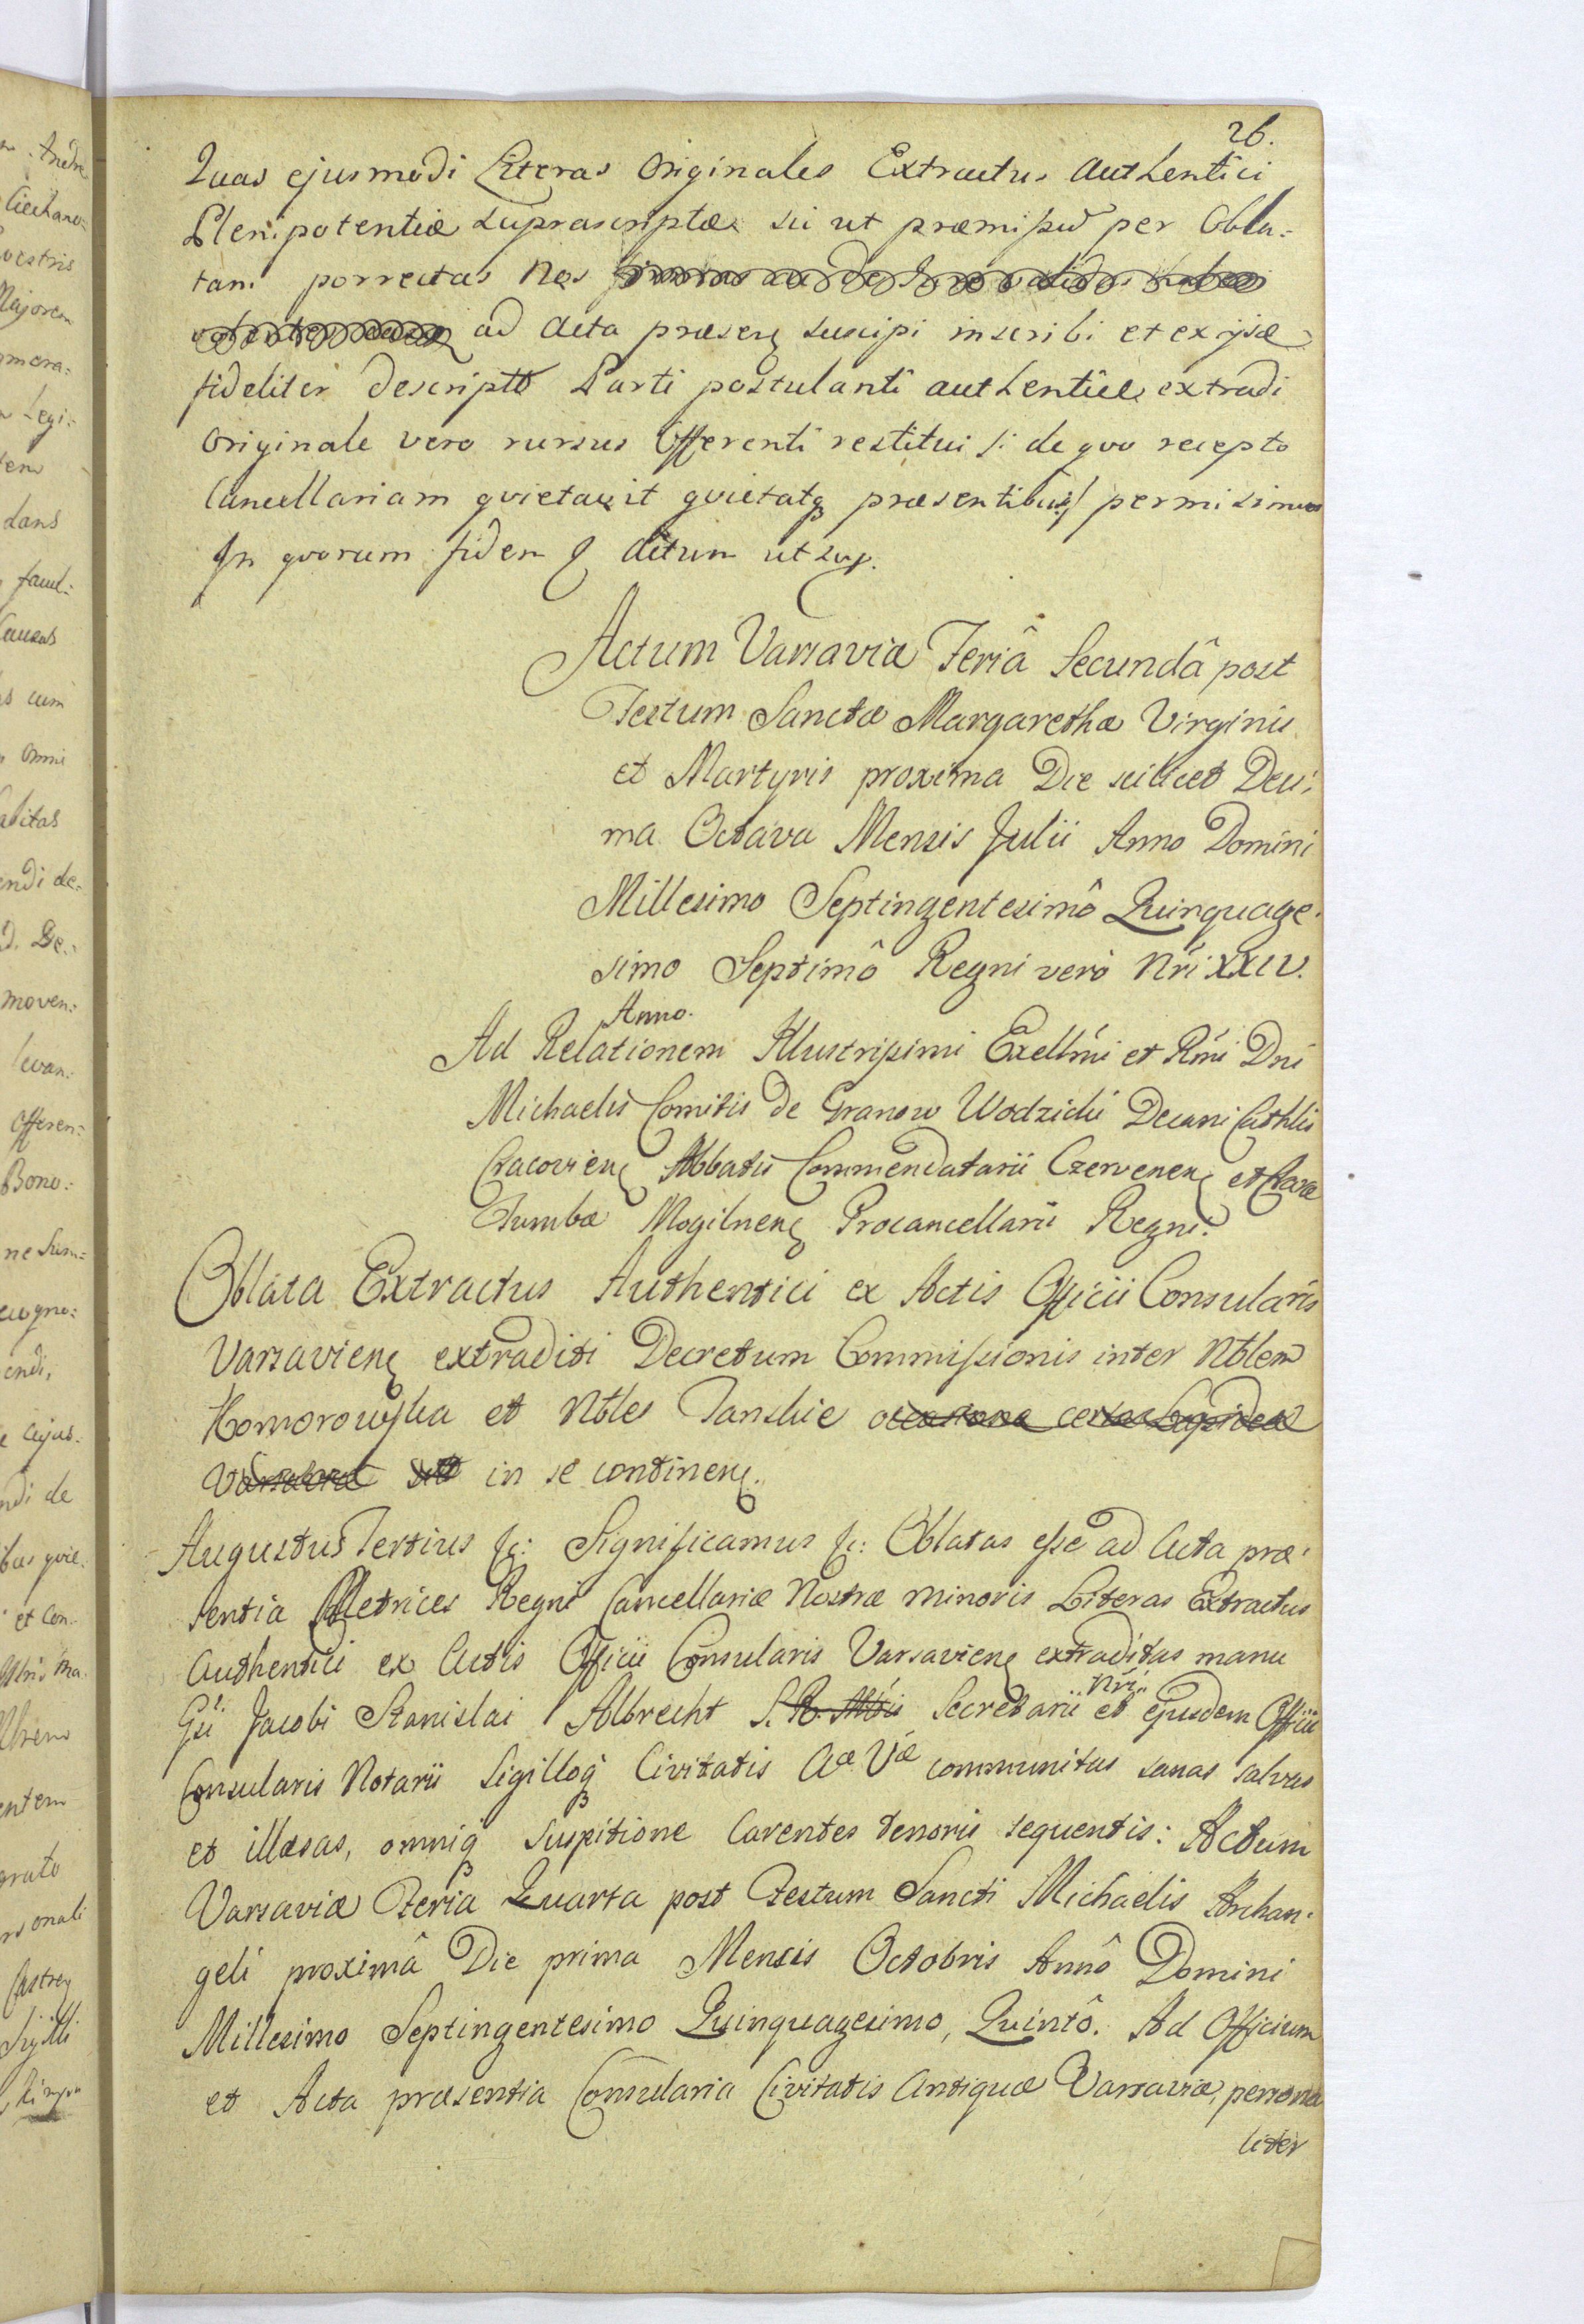 26.
Quas ejusmodi Literas Originales Extractus Authentici
Plenipotentiæ suprascriptæ sic ut præmissũ per Obla:
tam porrectas Nos
ad Acta præsenꝭ suscipi inscribi et ex ijsdẽ
fideliter descriptô Parti postulanti authenticè extradi
Originale vero rursus Offerenti restitui /: de quo recepto
Cancellariam quietavit quietatqꝫ præsentibus :/ permisimus
In quorum fidem & Actum ut sup.
Actum Varsaviæ Feriâ Secundâ post
Festum Sanctæ Margarethæ Virginis
et Martyris proxima Die scilicet Deci:
ma Octava Mensis Julii Anno Domini
Millesimo Septingentesimô Quinquage:
simo Septimô Regni verò Nri XXIV.
Anno.
Ad Relationem Illustrissimi Excellmi et Rmi Dni
Michaelis Comitis de Granow Wodzicki Decani Cathlis
Cracovienꝭ Abbatis Commendatarii Czervenenꝭ et Claræ
Tumbæ Mogilnenꝭ Procancellarii Regni.
Oblata Extractus Authentici ex Actis Officii Consularis
Varsavienꝭ extraditi Decretum Commissionis inter Nblem
Komorowska et Nbles Tanskie occasione certæ Lapideæ
Varsaviæ sitæ in se continenꝭ.
Augustus Tertius &c: Significamus &c: Oblatas esse ad Acta præ:
sentia Metrices Regni Cancellariæ Nostræ Minoris Literas Extractus
Authentici ex Actis Officii Consularis Varsavienꝭ extraditas manu
Gsi Jacobi Stanislai Albrecht S. R. Mtis Secretarii Nri et ejusdem Officii
Consularis Notarii Sigilloqꝫ Civitatis Aæ Væ communitas sanas salvas
et illæsas, omniqꝫ suspitione carentes tenoris sequentis: Actum
Varsaviæ Feria Quarta post Festum Sancti Michaelis Archan:
geli proximâ Die prima Mensis Octobris Annô Domini
Millesimo Septingentesimo Quinquagesimo, Quintô. Ad Officium
et Acta præsentia Consularia Civitatis Antiquæ Varsaviæ, persona
liter